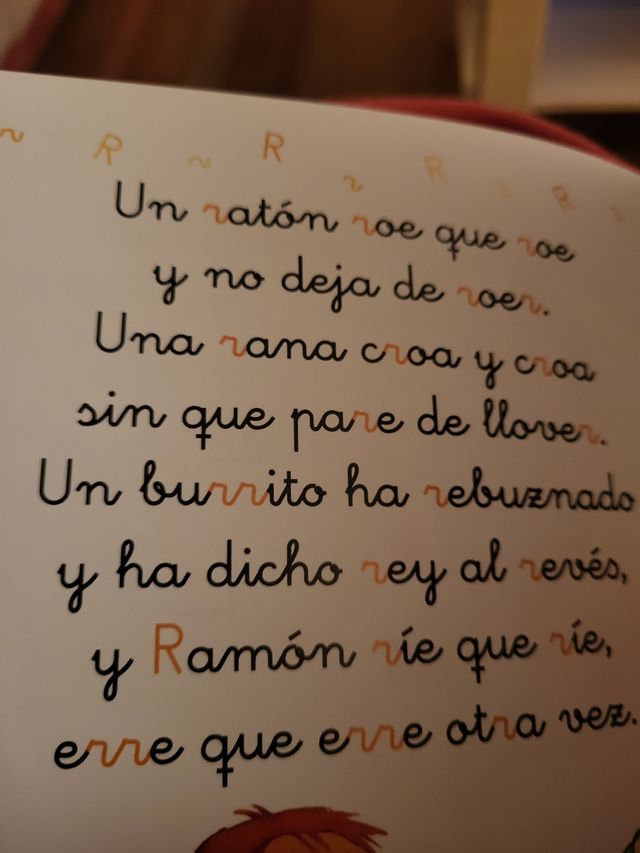 r R r R r R r R r
Un ratón roe que roe
y no deja de roer.
Una rana croa y croa
sin que pare de llover.
Un burrito ha rebuznado
y ha dicho rey al revés,
y Ramón ríe que ríe,
erre que erre otra vez.